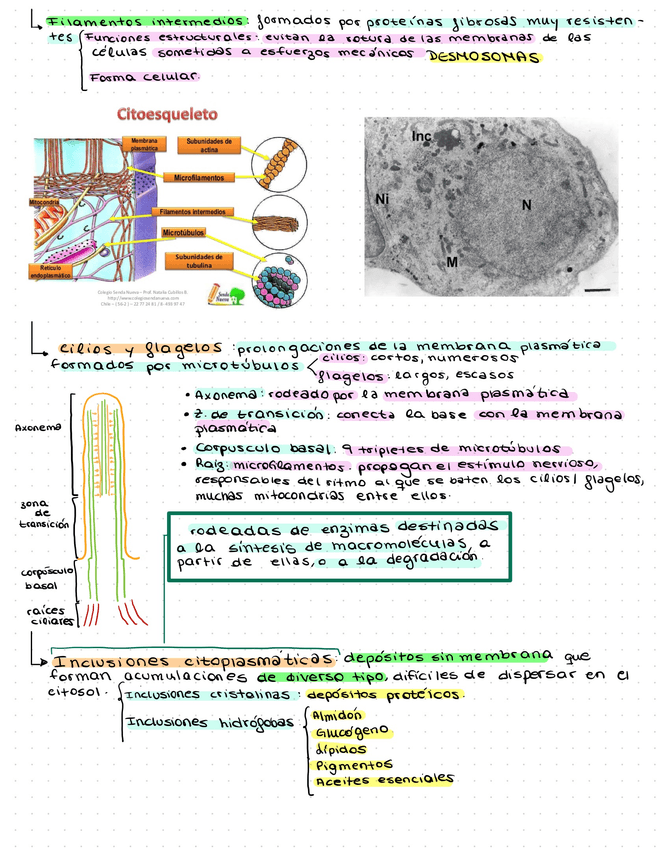 Filamentos intermedios: formados por proteínas fibrosas muy resisten-
tes
Funciones estructurales: evitan la rotura de las membranas de las
células sometidas a esfuerzos mecánicos DESMOSOMAS
Forma celular.
Citoesqueleto
Membrana
plasmática
Subunidades de
actina
Microfilamentos
Mitocondria
Filamentos intermedios
Microtúbulos
Subunidades de
tubulina
Retículo
endoplasmático
Inc
Ni
N
M
cilios y flagelos: prolongaciones de la membrana plasmática
formados por microtúbulos
cilios: cortos, numerosos
flagelos: largos, escasos
• Axonema: rodeado por la membrana plasmática
• Z. de transición: conecta la base con la membrana
plasmática
• Corpusculo basal. 9 tripletes de microtúbulos
• Raíz: microfilamentos. propagan el estímulo nervioso,
responsables del ritmo al que se baten los cilios/flagelos,
muchas mitocondrias entre ellos.
Axonema
zona
de
transición
corpúsculo
basal
raíces
ciliares
rodeadas de enzimas destinadas
a la síntesis de macromoléculas, a
partir de ellas, o a la degradación.
Inclusiones citoplasmáticas: depósitos sin membrana que
forman acumulaciones de diverso tipo, difíciles de dispersar en el
citosol.
Inclusiones cristalinas: depósitos protéicos.
Inclusiones hidrófobas
Almidón
Glucógeno
Lípidos
Pigmentos
Aceites esenciales